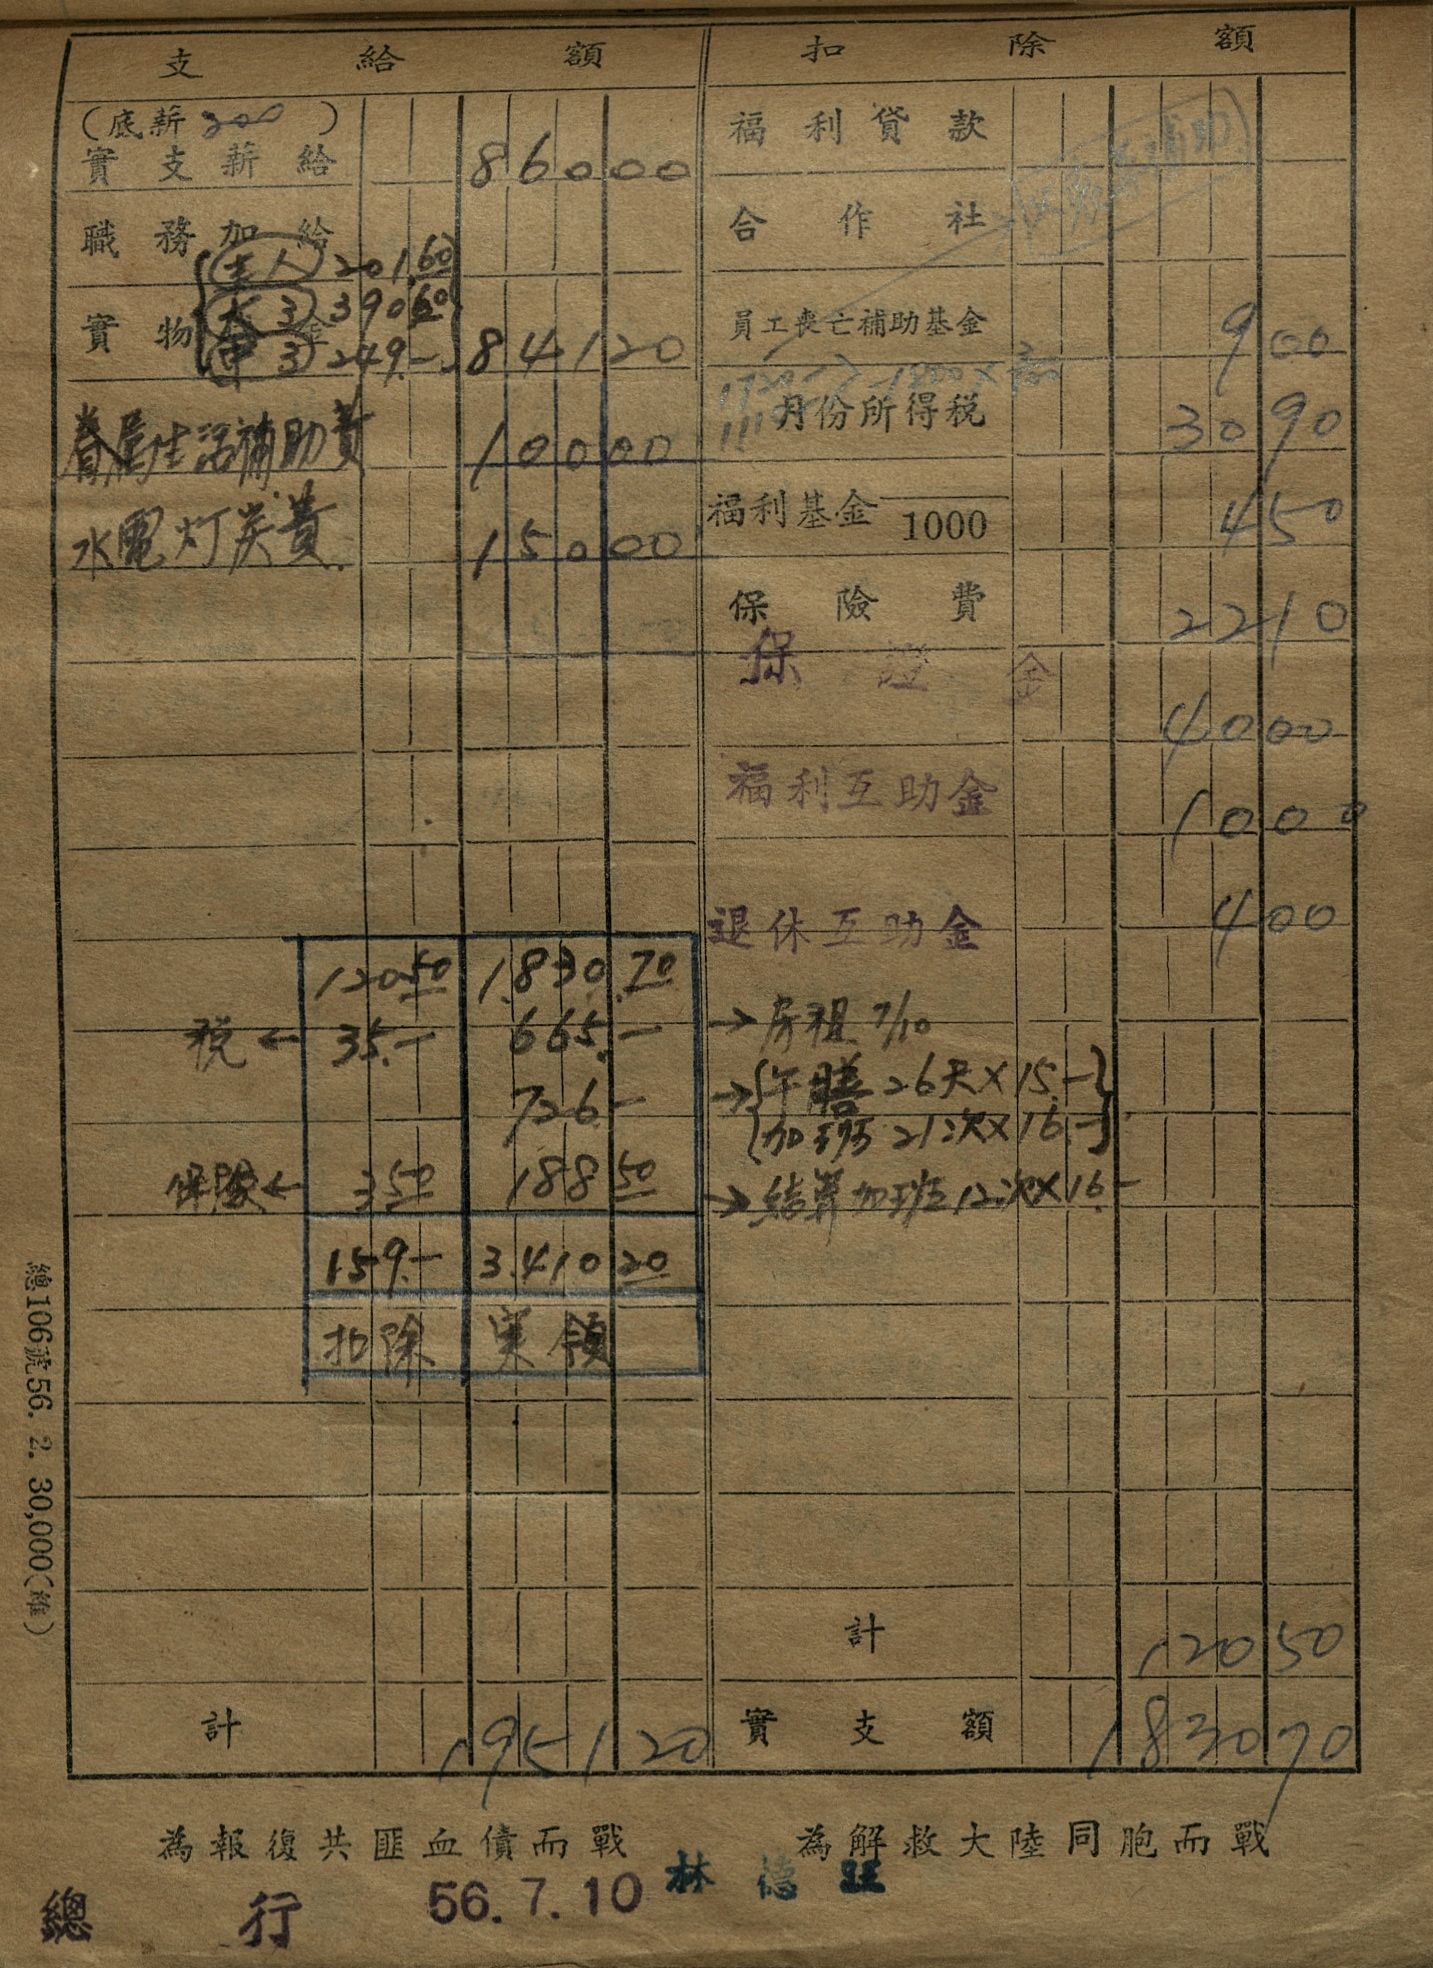 支給額
(底薪200)
實支薪給 86000
職務加給
主人 201.60
大3 390.60
實物 金 84120
中3 249.-
眷屬生活補助費 10000
水電灯炭費 15000
120.50 1.830.70
税← 35.- 665.-
726.-
保險← 3.50 188.50
159.- 3.410.20
扣除 実領
計 195120
扣除額
福利貸款
合作社
員工喪亡補助基金 900
月份所得税 3090
福利基金 1000 450
保險費 2210
保證金 4000
福利互助金 1000
退休互助金 400
→房租 7/10
→午膳 26天×15.-
加班 21次×16.-
→結算加班12次×16.-
計 12050
實支額 183070
總106號56. 2. 30,000(維)
為報復共匪血債而戰 為解救大陸同胞而戰
總行 56.7.10 林德旺